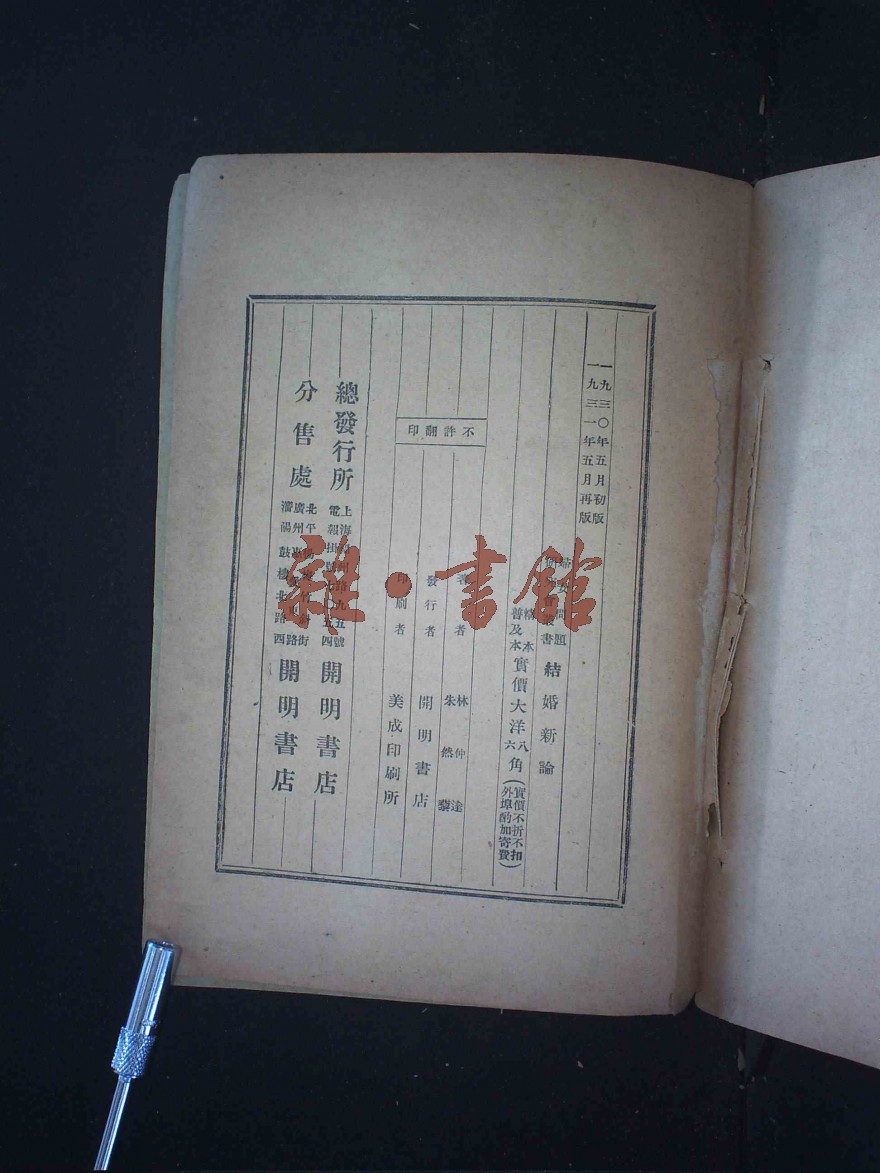 一九三〇年五月初版
一九三一年五月再版
婦女問題
研究會叢書
結婚新論
精本
普及本
實價大洋
八
六
角
(實價不折不扣
外埠酌加寄費)
不許翻印
著者
林仲達
朱然藜
發行者
開明書店
印刷者
美成印刷所
總發行所
上海福州路九五號
電報掛號七〇五四
開明書店
分售處
北平楊梅竹斜街
廣州惠愛東路
瀋陽鼓樓北路西
開明書店
雜·書館